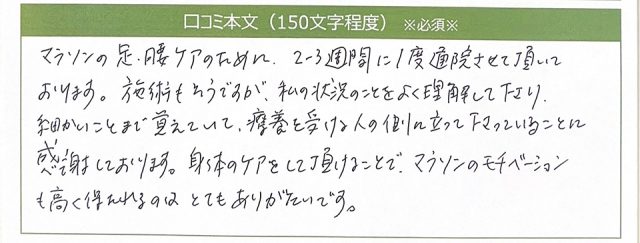 口コミ本文(150文字程度) ※必須※
マラソンの足・腰ケアのために、2~3週間に1度通院させて頂いて
おります。施術もそうですが、私の状況のことをよく理解して下さり、
細かいことまで覚えていて、療養を受ける人の側に立って下さっていることに
感謝しております。身体のケアをして頂けることで、マラソンのモチベーション
も高く保たれるのは とてもありがたいです。